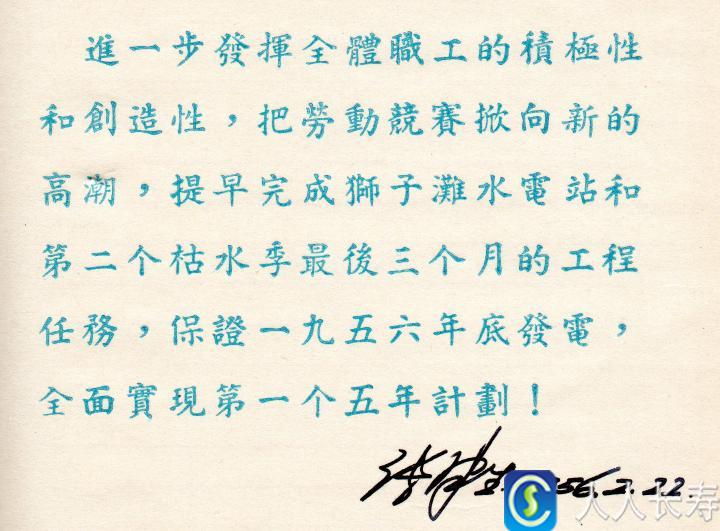 進一步發揮全體職工的積極性
和創造性，把勞動競賽掀向新的
高潮，提早完成獅子灘水電站和
第二个枯水季最後三个月的工程
任務，保證一九五六年底發電，
全面實現第一个五年計劃！
56.2.22.
人人长寿